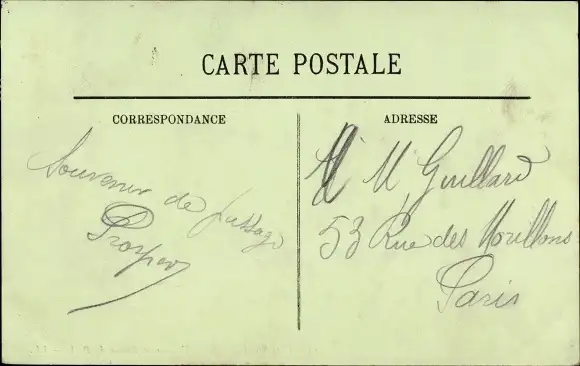 CARTE POSTALE
CORRESPONDANCE
Souvenir de passage
Prosper
ADRESSE
M Guillard
53 Rue des Morillons
Paris